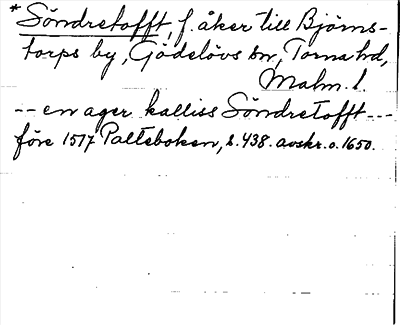 * Söndretofft, f. åker till Björns-
torps by, Gödelövs sn, Torna hd,
Malm. l.
-- en ager kalliss Söndretofft ---
före 1517 Palteboken, s. 438. avskr. o. 1650.